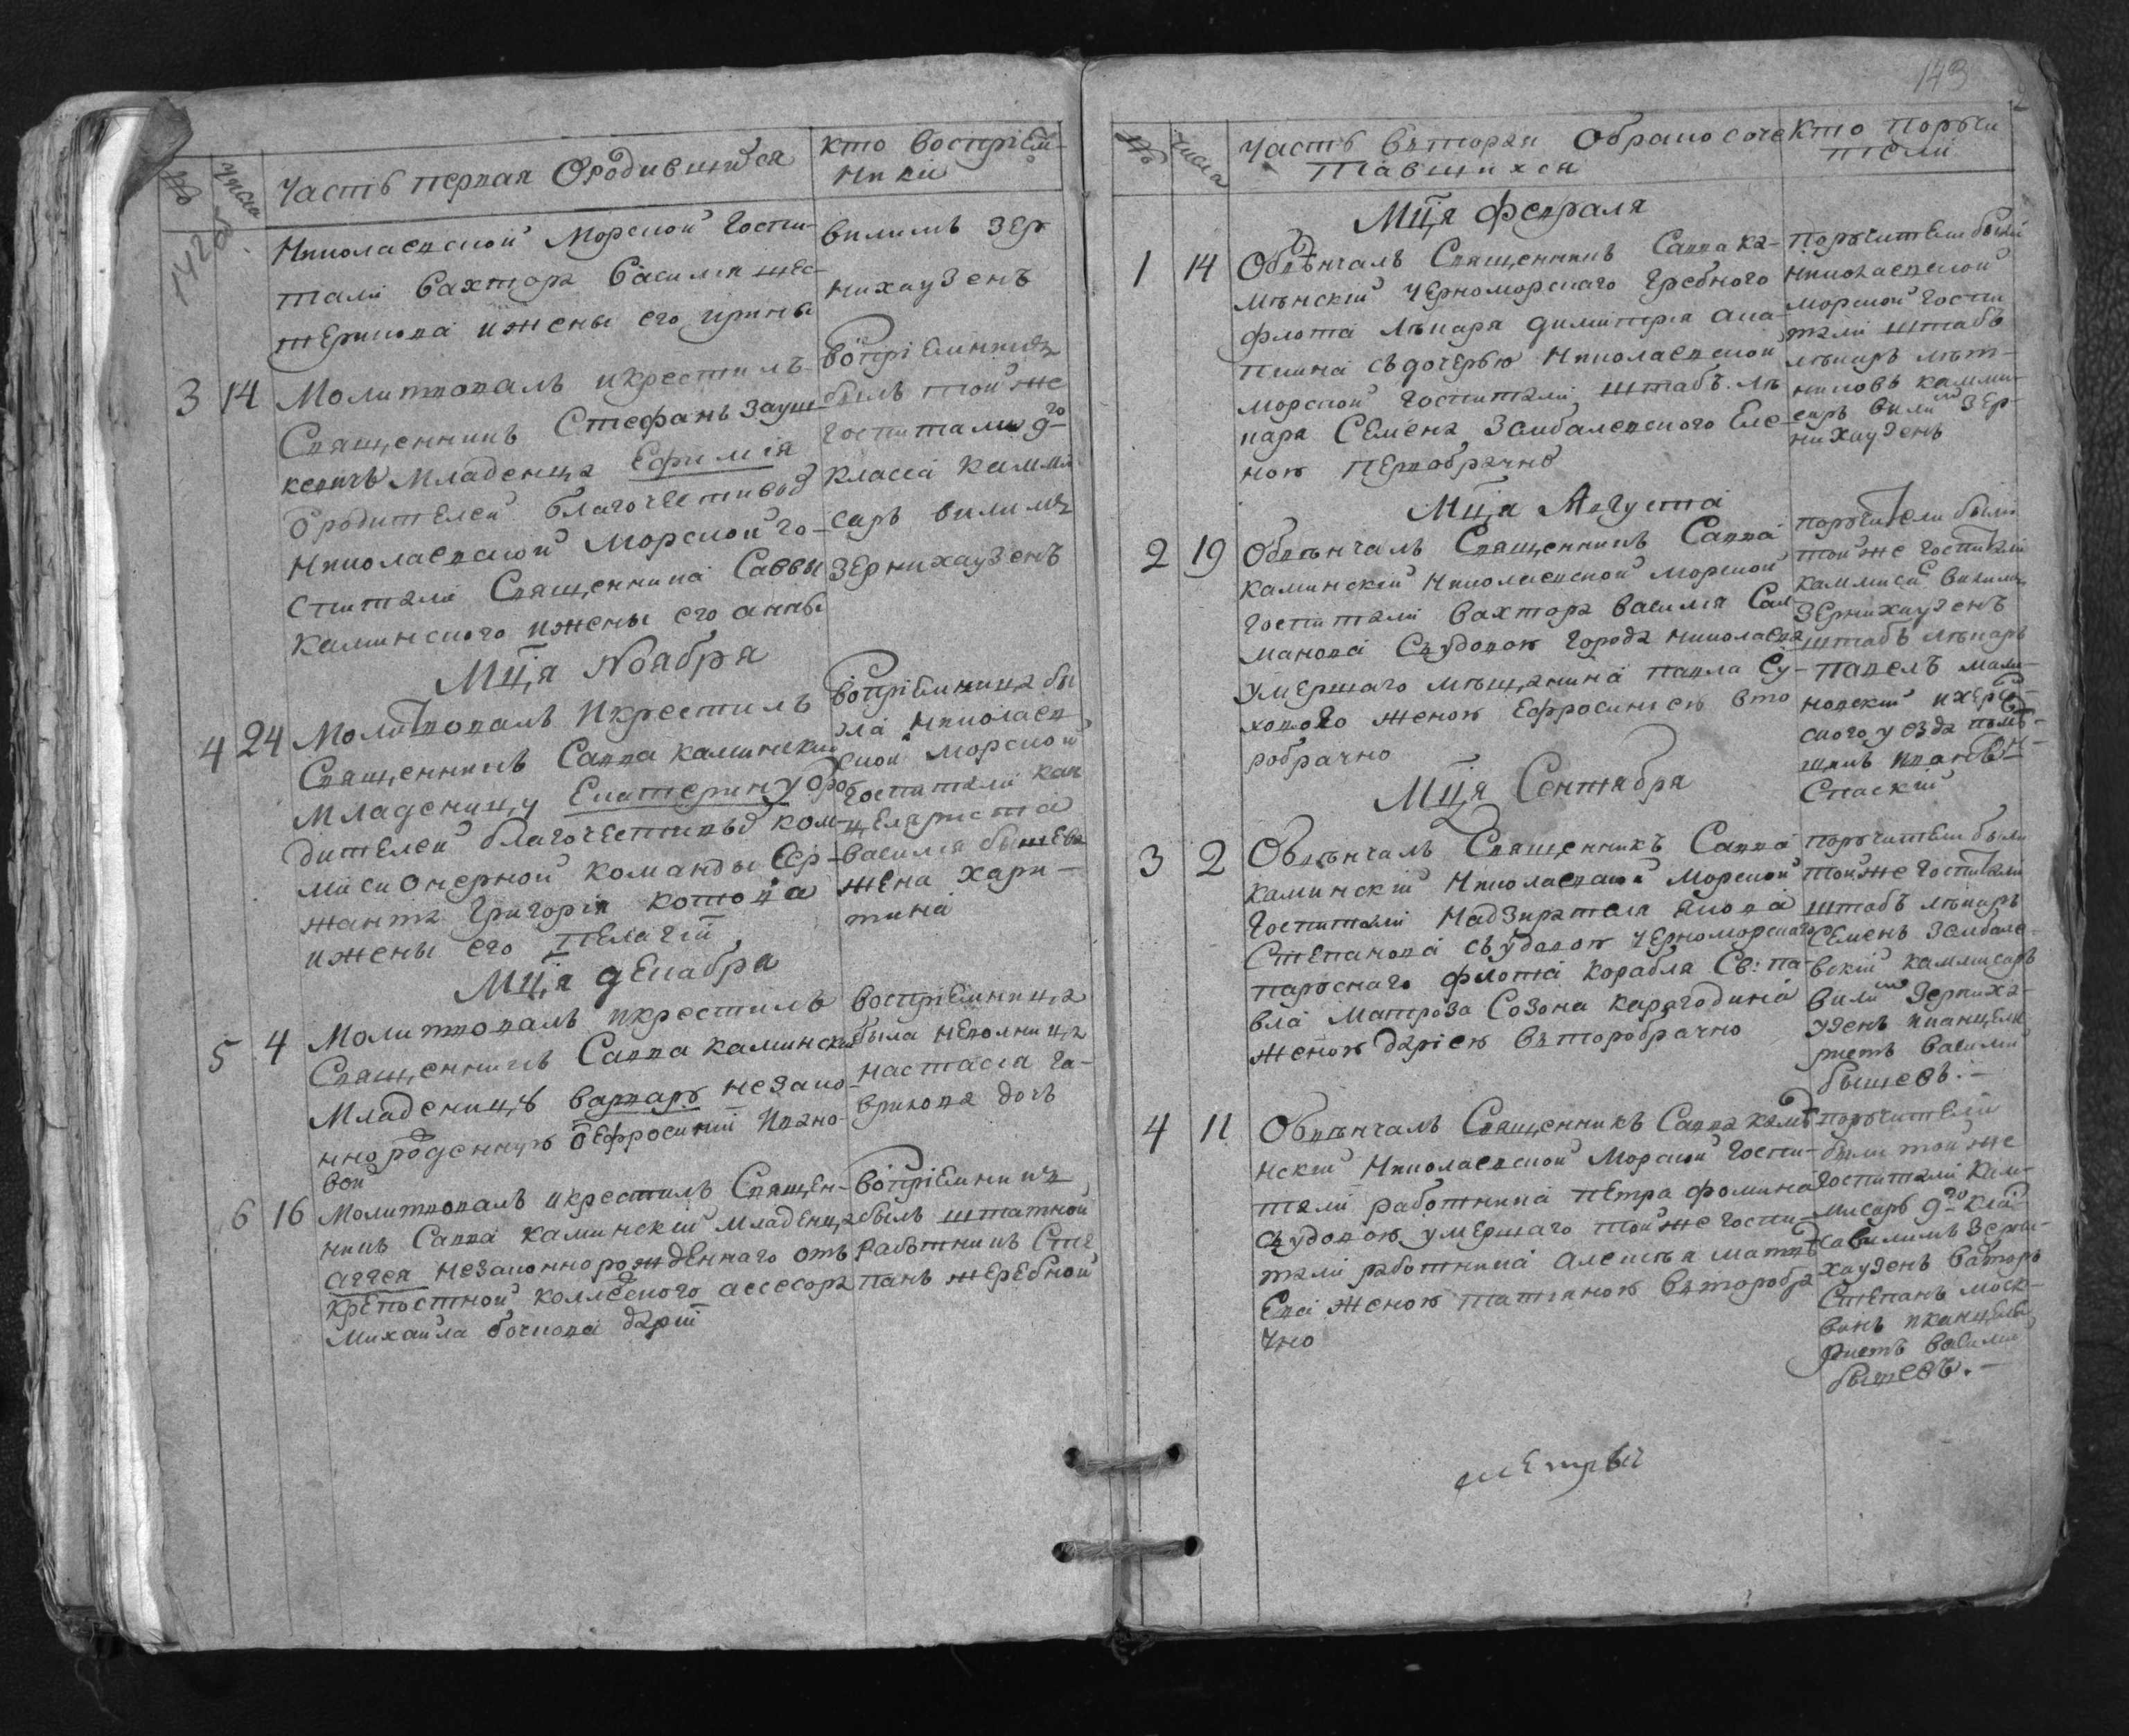 142 об
№
числа
Часть первая О родившихся
кто восприем-
ники
Николаевской Морской Госпи-
тали Вахтора Василия Шес-
терикова и жены его ирины
вилимъ Зер
нихаузенъ
3 14
Молитвовалъ и крестилъ
Священникъ Стефанъ Зауш-
кевичъ Младенца Ефимія
О родителей благочестивых
Николаевской Морской го-
спитали Священника Саввы
Каминского и жены его анны
Воспріемникъ
былъ той же
госпитали 9го
класса каммі
саръ вилимъ
Зернихаузенъ
Мц̃а Ноября
4 24
Молитвовалъ И крестилъ
Священникъ Савва каминскій
Младеницу Екатерину О ро
дителей благочестивых ком-
мисионерной команды Сер-
жанта Григорія Котова
и жены его Пелагіи
воспріемница бы
ла Николаев
ской Морской
госпитали кан
целяриста
Василія бышева
жена хари-
тина
Мц̃а декабря
5 4
Молитвовалъ и крестилъ
Священникъ Савва каминскій
Младеницъ варвару незако-
ннорожденную О Ефросиніи Ивано-
вой
воспріемница
была Неполница
Настасія га-
врилова дочь
6 16
Молитвовалъ и крестилъ Священ-
никъ Савва каминскій Младенца
аггея незаконнорожденнаго отъ
крепостной коллеского ассесора
Михаила бочкова даріи
воспріемникъ
былъ штатной
работникъ Сте
панъ жеребной
143
№
числа
Часть вторая О бракосоче
тавшихся
кто поручи
тели
Мц̃а февраля
1 14
Обвѣнчалъ Священникъ Савва ка-
мѣнскій Черноморскаго Гребного
флота лѣкаря димитрія ана
ниина съ дочерью Николаевской
морской Госпитали штабъ лѣ
каря Семена Замбалевского Еле
ною первобрачно
Поручители были
Николаевской
морской госпи
тали штабъ
лѣкарь мѣт-
никовъ камми-
саръ вилим Зер-
нихаузенъ
Мц̃а Августа
2 19
Обвѣнчалъ Священникъ Савва
каминскій Николаевской Морской
Госпитали Вахтора василія Сал
манова Съ удовою города Николаева
умершаго мѣщанина павла Су-
ховово женою Ефросиниею вто
робрачно
поручители были
той же госпитали
каммисаръ вилимъ
Зернихаузенъ
штабъ лѣкарь
павелъ мали-
новский и херсо
ского уезда помѣ-
щикъ иванъ
Спаскій
Мц̃а Сентября
3 2
Обвѣнчалъ Священникъ Савва
каминскій Николаевской Морской
Госпитали Надзирателя Якова
Степанова съ удовою Черноморскаго
паруснаго флота корабля Св: па-
вла Матроза Созона карагодина
женою даріею второбрачно
поручители были
той же госпитали
штабъ лѣкарь
Семенъ Замбале-
вскій каммисаръ
вилим Зерниха-
узенъ и канцеля
ристъ Василий
бышевъ.-
4 11
Обвѣнчалъ Священникъ Савва камѣ
нскій Николаевской Морской Госпи-
тали работника петра фомина
Съ удовою умершаго той же госпи-
тали работника Алексѣя Матве
Ева женою татіаною второбра
чно
поручители
были той же
госпитали кам-
мисаръ 9го кла
са вилимъ Зерни-
хаузенъ вахторъ
Степанъ Моск-
винъ и канцеля
ристъ василий
бышевъ.-